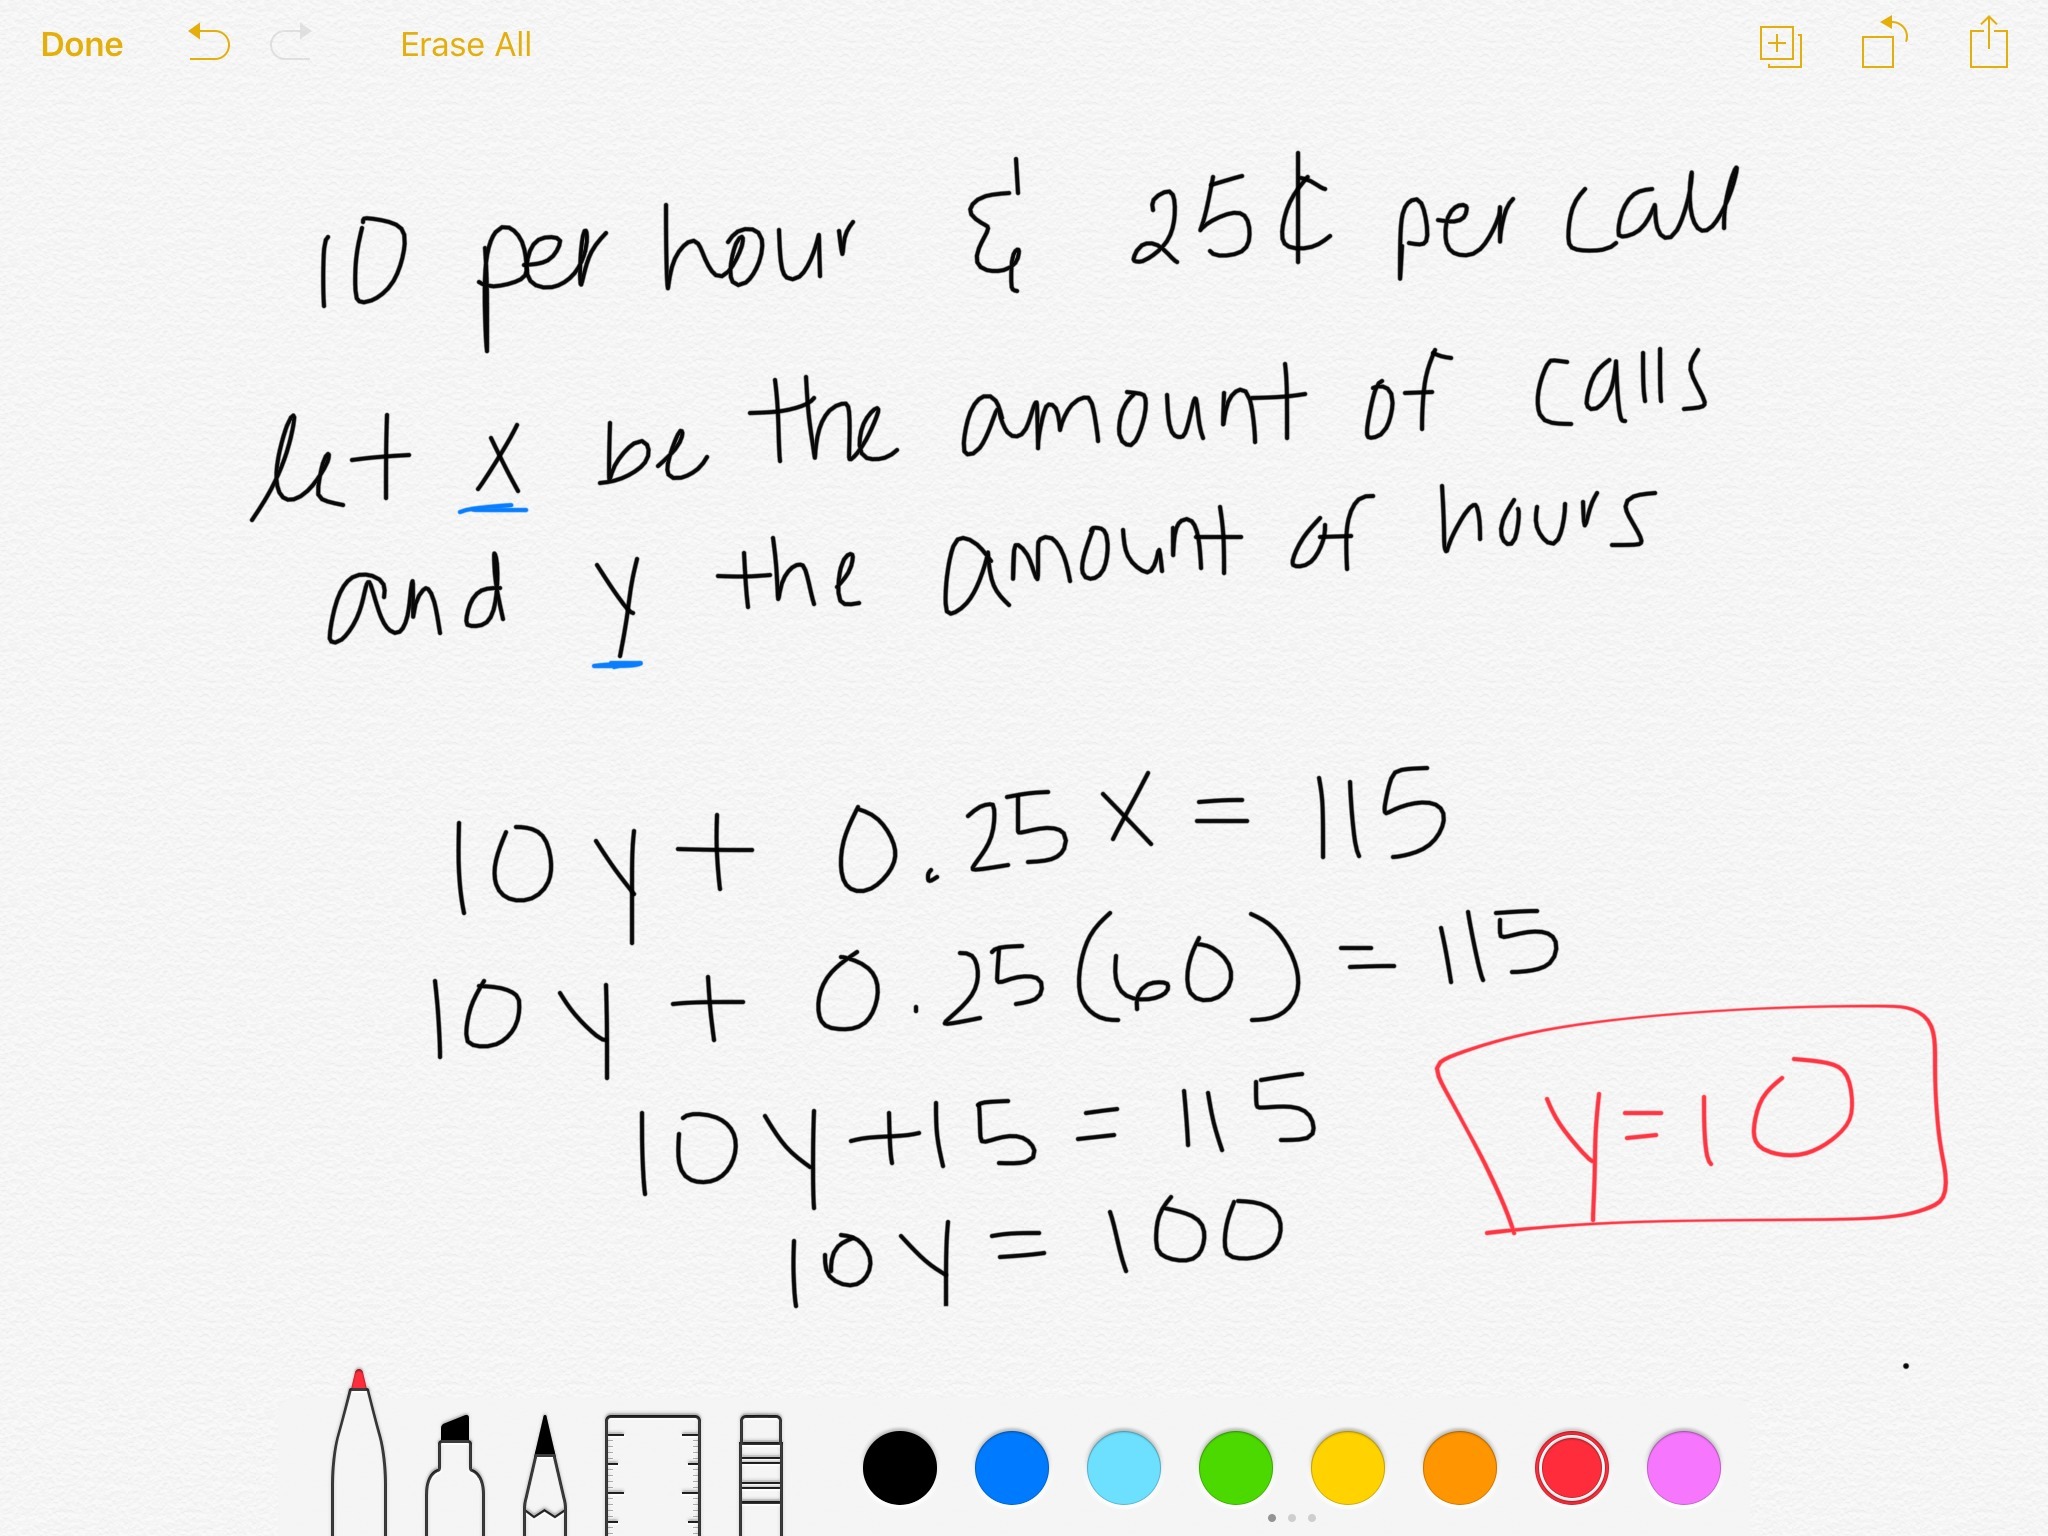 Done Erase All
10 per hour & 25¢ per call
let x be the amount of calls
and y the amount of hours
10y + 0.25x = 115
10y + 0.25(60) = 115
10y+15 = 115
y=10
10y = 100